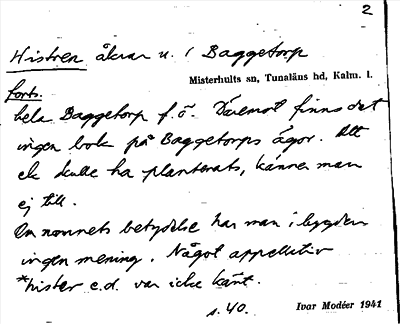 2
Histren åkrar u. / Baggetorp
Misterhults sn, Tunaläns hd, Kalm. l.
forts.
hela Baggetorp f.ö. Däremot finns det
ingen bok på Baggetorps ägor. Att
ek skulle ha planterats, känner man
ej till.
Om namnets betydelse har man i bygden
ingen mening. Något appellativ
*hister e.d. var icke känt.
s. 40.
Ivar Modéer 1941